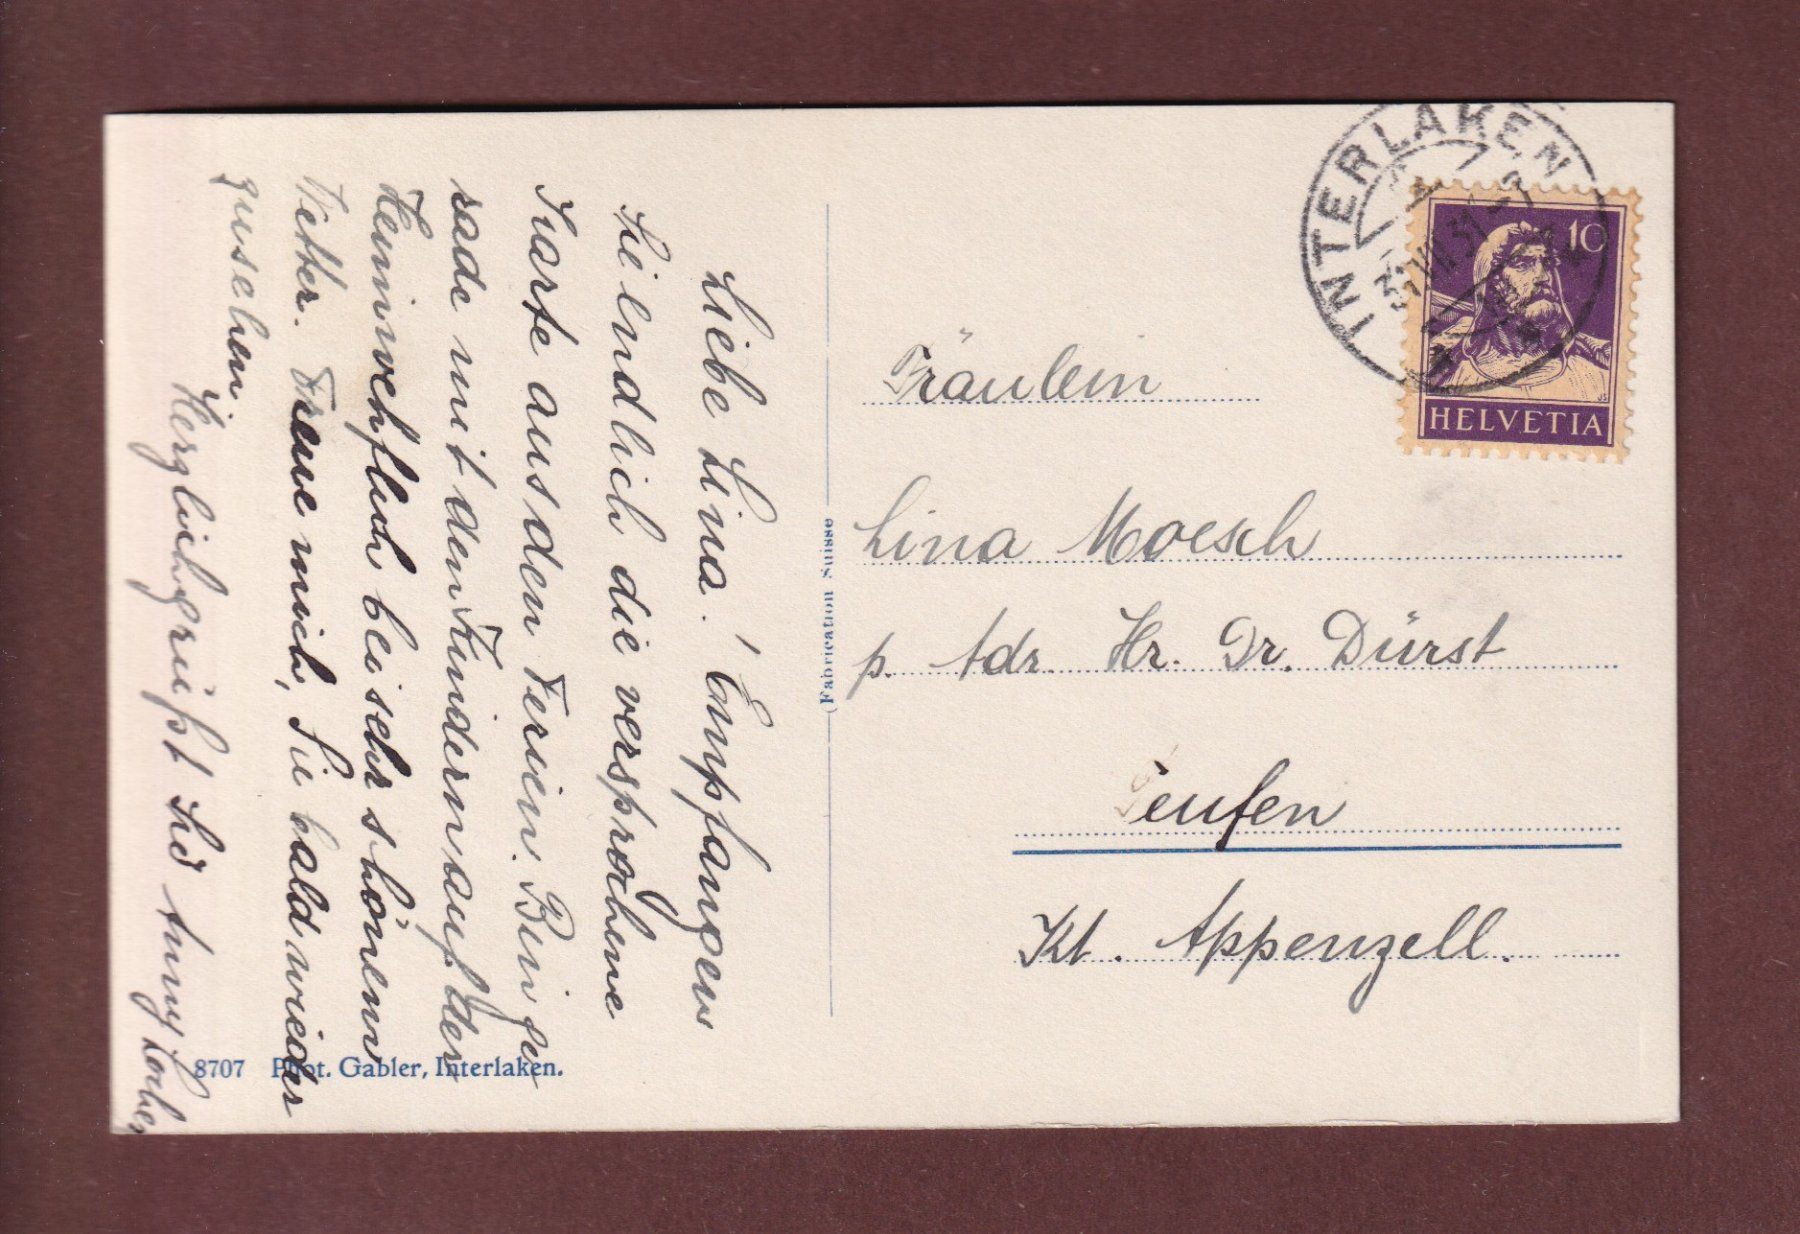 Liebe Lina! Empfangen
Sie endlich die versprochene
Karte aus den Ferien. Bin ge
rade mit den Kindern auf der
Heimwehfluh bei sehr schönem
Wetter. Freue mich, Sie bald wieder
zusehen
Herzlich grüßt Sie Anny Locher
8707 Phot. Gabler, Interlaken.
(Fabrication Suisse
INTERLAKEN
31.VII.31
10
HELVETIA
Fräulein
Lina Moesch
p. Adr. Hr. Dr. Dürst
Teufen
Kt. Appenzell.